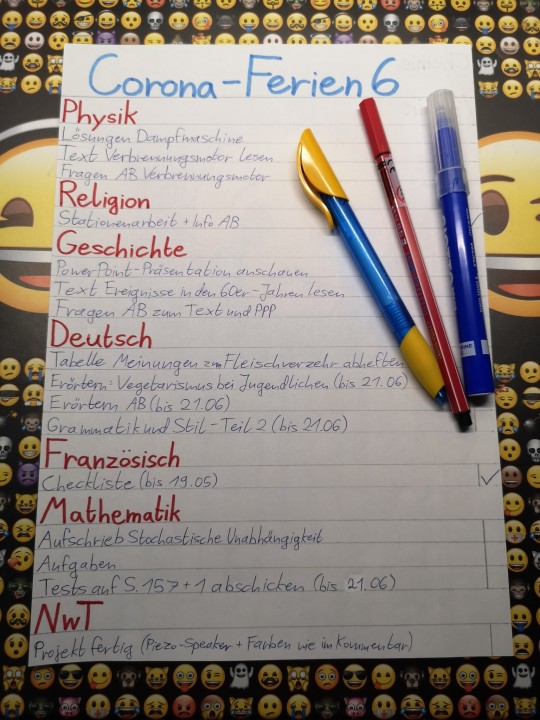 Corona-Ferien 6
Physik
Lösungen Dampfmaschine
Text Verbrennungsmotor lesen
Fragen AB Verbrennungsmotor
Religion
Stationenarbeit + Info AB
Geschichte
PowerPoint-Präsentation anschauen
Text Ereignisse in den 60er-Jahren lesen
Fragen AB zum Text und PPP
Deutsch
Tabelle Meinungen zum Fleischverzehr abheften
Erörtern: Vegetarismus bei Jugendlichen (bis 21.06)
Erörtern AB (bis 21.06)
Grammatik und Stil - Teil 2 (bis 21.06)
Französisch
Checkliste (bis 19.05)
Mathematik
Aufschrieb Stochastische Unabhängigkeit
Aufgaben
Tests auf S. 157 + 1 abschicken (bis 21.06)
NwT
Projekt fertig (Piezo-Speaker + Farben wie im Kommentar)